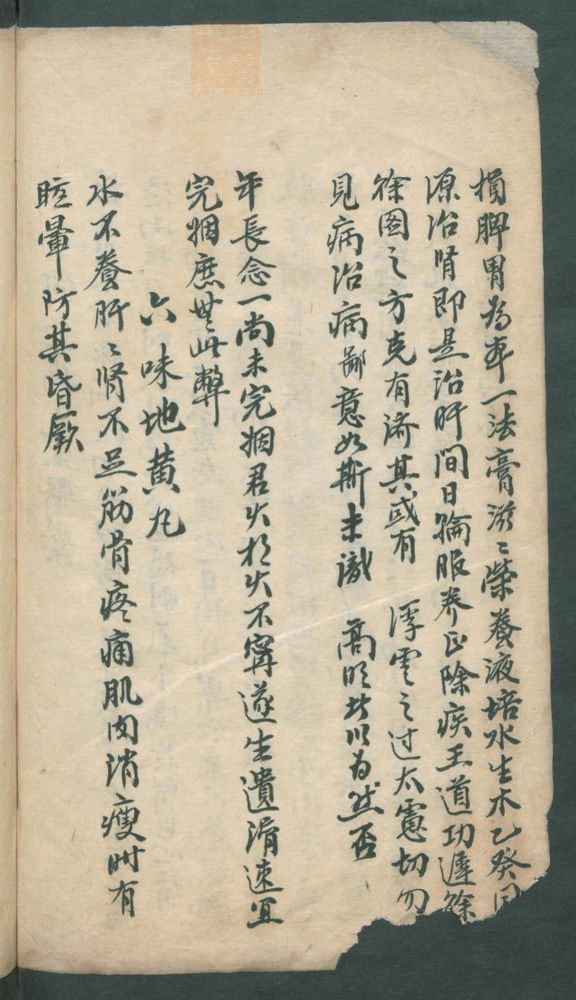 損脾胃為奉一法膏滋〻榮養液培水生木乙癸同
源治腎即是治肝間日輪服养正除疾王道功遲餘
徐圖之方克有济其或有 浮雲之过太憲切勿
見病治病鄙意如斯未識 高明 以为然否
年長念一尚未完姻君火相火不寧遂生遺滑速宜
完姻庶無此弊
六味地黄丸
水不養肝〻腎不足筋骨疼痛肌肉消瘦时有
眩暈防其昏厥